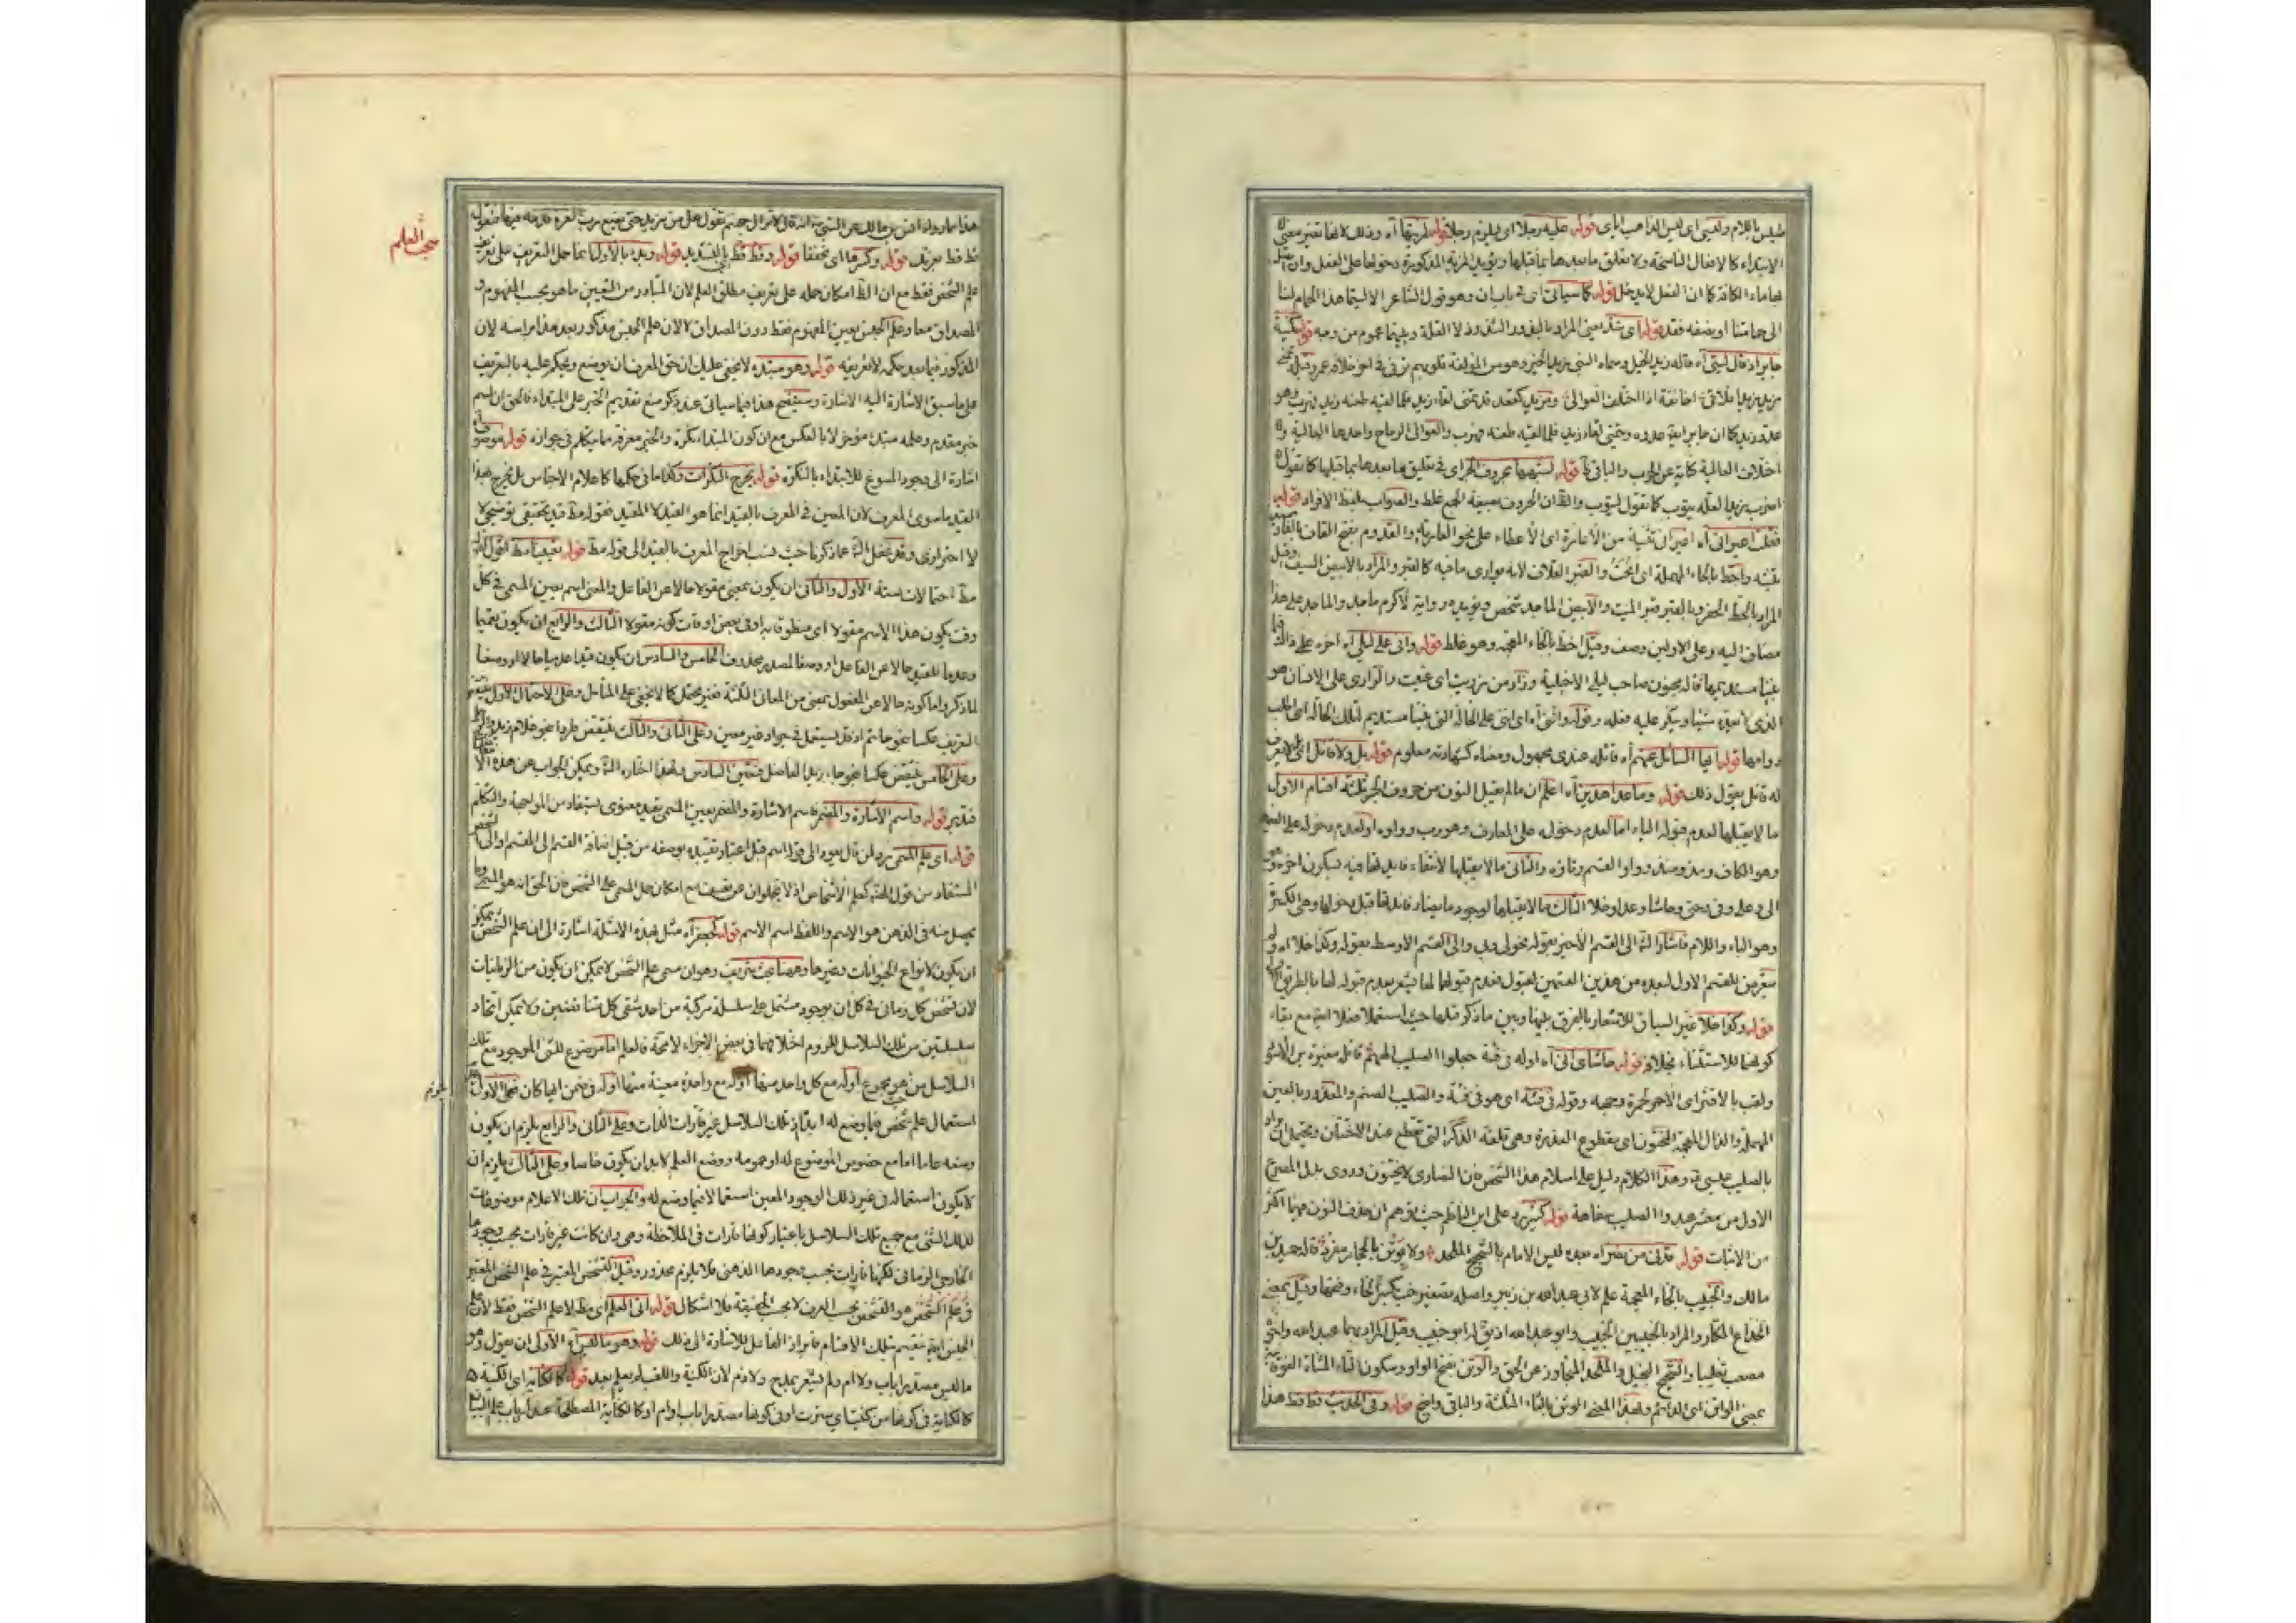 طيلس باللام وليتى اى ليس الذاهب اياى قوله عليه رجلا اى يلزم رجلا قوله لمزيتها آه وذلك لانها تغير معنى
الابتداء كالافعال الناسخة ولا يتعلق ما بعدها بما قبلها ويؤيد المزية المذكورة دخولها على الفعل وان
بما الكافة كان الفعل لا يدخل قوله كما سياتى اى فى باب ان وهو قول الشاعر الا ليتما هذا الحمام لنا
الى حمامتنا او نصفه فقد قوله اى شذ يعنى المراد بالندور الشذوذ لا القلة وبينهما عموم من وجه قوله كمنية
جابر اذ قال ليتى آه قاله زيد الخيل وسماه النبى بزيد الخير وهو من المؤلفة قلوبهم توفى فى اخر خلافة عمر وقبله تمنى
مزيد زيدا فلاقى اخا ثقة اذا اختلف العوالى ومزيد كمقعد قد تمنى لقاء زيد فلما لقيه طعنه زيد فهرب وهو
عدو زيد كما ان جابر ايضا عدوه ويتمنى لقاء زيد فلما لقيه طعنه فهرب والعوالى الرماح واحدها العالية و
اختلاف العالية كناية عن الحرب والباقى ظ قوله لشبهها بحروف الجر اى فى تعليق ما بعدها بما قبلها كما تقول
اضرب زيدا لعله يتوب كما تقول ليتوب والظ ان الحروف بصيغة الجمع غلط والصواب بلفظ الافراد قوله
فقلت اعيرانى آه اعيران تثنية من الاعارة اى الاعطاء على نحو العارية والقدوم بفتح القاف
واخط بالخاء المهملة اى انحت والقبر الغلاف لانه يوارى ما فيه كالقبر والمراد بالابيض السيف وقيل
المراد بالخط الحفر وبالقبر قبر الميت والابيض الماجد شخص ويؤيده رواية لاكرم ماجد والماجد على هذا
مضاف اليه وعلى الاولين وصف وقيل اخط بالخاء المعجمة وهو غلط قوله وانى على ليلى آه اخره على ذاك
فيما بيننا مستديمها قاله مجنون صاحب ليلى الاخيلية وزار من زريت اى عتبت والزارى على الانسان هو
الذى لا يعده شيئا وينكر عليه فعله وقوله وانى آه اى انى على الحالة التى بيننا مستديم لتلك الحالة اى طالب
دوامها قوله ايها السائل عنهم آه قائله عندى مجهول ومعناه كشهادته معلوم قوله بل ولا قائل
له قائل بقول ذلك قوله وما عدا هذين آه اعلم ان ما لم يقبل النون من حروف الجر ثلثة اقسام الاول
ما لا يقبلها لعدم قبوله الياء اما لعدم دخوله على المعارف وهو رب وواوه او لعدم دخوله على الضمير
وهو الكاف ومذ ومنذ وواو القسم وتاؤه والثانى ما لا يقبلها لانتفاء فائدتها فيه لسكون اخره وهو
الى وعلى وفى وحتى وحاشا وعدا وخلا الثالث ما لا يقبلها لوجود ما ينافى فائدتها قبل دخولها وهى الكسرة
وهو الباء واللام فاشار الشم الى القسم الاخير بقوله نحو لى وبى والى القسم الاوسط بقوله وكذا خلا آه ولم
يتعرض للقسم الاول لبعده من هذين القسمين لقبول فعدم قبولها لها يشعر بعدم قبوله لها بالطريق
قوله وكذا خلا غير السياق للاشعار بالفرق بينها وبين ما ذكر قبلها حيث استعملا فعلا ايضا مع بقاء
كونها للاستثناء بخلافه قوله حاشاى انى آه اوله فى فتية جعلوا الصليب الههم قائله مغيرة بن الاسود
ولقب بالاقشر اى الاحمر لحمرة وجهه وقوله فى فتية اى هو فى فتية والصليب الصنم والمعذور بالعين
المهملة والذال المعجمة المختون اى مقطوع العذرة وهى قلفة الذكر التى تقطع عند الاختتان ويحتمل ان يراد
بالصليب عليسى وهذا الكلام دليل على اسلام هذا الشخص فان النصارى لا يختنون وروى بدل المصرع
الاول من معشر عبدوا الصليب سفاهة قوله كثير رد على ابن الناظم حيث توهم ان حذف النون منهما اكثر
من الاثبات قوله قدنى من نصراه بعده ليس الامام بالشحيح الملحد ولا بوتن بالحجاز مفرد قاله حميد بن
مالك والخبيب بالخاء المعجمة علم لابى عبد الله بن زبير واصله تصغير خب بكسر الخاء وفتحها وقيل بمعنى
الخداع المكار والمراد بالخبيبين الخبيب وابو عبد الله اذ يق له ابو خبيب وقيل المراد بهما عبد الله واخو
مصعب تغليبا والشحيح البخيل والملحد المتجاوز عن الحق والوتن بفتح الواو وسكون التاء المثناة الفوقية
بمعنى الواتن اى الدائم ولهذا المعنى الوثن بالثاء المثلثة والباقى واضح قوله وفى الحديث قط قط هذا
مبحث العلم
قط قط بعزتك قوله وكسرها اى مخففا قوله وقط قط بالتشديد قوله وبدء بالاول انما حمل التعريف على تعريف
علم الشخص فقط مع ان الظ امكان حمله على تعريف مطلق العلم لان المتبادر من التعيين ما هو بحسب المفهوم و
المصداق معا وعلم الجنس يعين المفهوم فقط دون المصداق لا لان علم الجنس مذكور بعد هذا براسه لان
المذكور فيما بعد حكمه لا تعريفه قوله وهو مبتدء لا يخفى عليك ان حق المعرف ان يوضع ويحكم عليه بالتعريف
على ما سبق الاشارة اليه الاشارة وسيتضح هذا فيما سياتى عند ذكر منع تقديم الخبر على المبتداء فالحق ان اسم
خبر مقدم وعلمه مبتدء مؤخر لا بالعكس مع ان كون المبتداء نكرة والخبر معرفة مما يتكلم فى جوازه قوله موصوف
اشارة الى وجود المسوغ للابتداء بالنكرة قوله يخرج النكرات وكذا ما فى حكمها كاعلام الاجناس بل يخرج بهذا
القيد ما سوى المعرف لان المعين فى المعرف بالقيد انما هو القيد لا المقيد فقوله مط قيد تحقيقى توضيحى لا
لا احترازى وقد غفل الشم عما ذكرنا حيث نسب اخراج المعرف بالقيد الى قوله مط قوله تعيينا مط اقول فى
مط احتمالات ستة الاول والثانى ان يكون بمعنى مقولا حالا عن الفاعل والمعنى اسم يعين المسمى فى كل
وقت يكون هذا الاسم مقولا اى منطوقا به او فى بعض اوقات كونه مقولا الثالث والرابع ان يكون بمعنى
وعدما للقيد حالا عن الفاعل او وصفا لمصدر محذوف الخامس والسادس ان يكون قيدا عدميا حالا او وصفا
لما ذكر واما كونه حالا عن المفعول بمعنى من المعانى الثلثة فغير محتمل كما لا يخفى على المتامل وعلى الاحتمال الاول ينتقض
التعريف عكسا بنحو حاتم اذ قد يستعمل فى جواد غير معين وعلى الثانى والثالث ينتقض طردا بنحو غلام زيد
وعلى الخامس ينتقض عكسا بنحو جاء زيد الفاضل فتعين السادس ولهذا اختاره الشم ويمكن الجواب عن هذه
فتدبر قوله واسم الاشارة والمضمر فاسم الاشارة والمضمر يعين المسمى بقيد معنوى يستفاد من المواجهة والتكلم
قوله اى علم المسمى رد لمن قال يعود الى قوله اسم قبل اعتبار تقييده بوصفه من قبيل اضافة القسم الى المقسم او الى الشخص
المستفاد من قول المص كعلم الاشخاص اذ لا يخلوان عن تعسف مع امكان حمل المسمى على الشخص فان الحق انه هو المسمى وما
يحصل منه فى الذهن هو الاسم واللفظ اسم الاسم قوله كجعفر آه مثل بهذه الامثلة اشارة الى ان علم الشخص يمكن
ان يكون لانواع الحيوانات وغيرها وههنا بحث شريف وهو ان مسمى علم الشخص لا يمكن ان يكون من الزمانيات
لان تشخص كل زمانى فى كل ان بوجود مشتمل على سلسلة مركبة من احد شقى كل متناقضين ولا يمكن اتحاد
سلسلتين من تلك السلاسل للزوم اختلافهما فى بعض الاجزاء لا محة فالعلم اما موضوع للشئ الموجود مع تلك
السلاسل من هو مجموع او له مع كل واحد منها او له مع واحدة معينة منها او له فى ضمن ايها كان فعلى الاول
استعمال علم شخص فيما وضع له ابدا اذ تلك السلاسل غير قارات الذات وعلى الثانى والرابع يلزم ان يكون
وضعه عاما اما مع خصوص الموضوع له او عمومه ووضع العلم لابد ان يكون خاصا وعلى الثالث يلزم ان
لا يكون استعماله فى غير ذلك الوجود المعين استعمالا فيما وضع له والجواب ان تلك الاعلام موضوعات
لذلك الشئ مع جميع تلك السلاسل باعتبار كونها قارات فى الملاحظة وهى وان كانت غير قارات بحسب وجودها
الخارجى الزمانى لكنها قارات بحسب وجودها الذهنى فلا يلزم محذور وقيل التشخص المعتبر فى علم الشخص المعتبر
فى علم الشخص هو التشخص بحسب العرف لا بحسب الحقيقة فلا اشكال قوله اى العلم اى مط لا علم الشخص فقط لان علم
الجنس ايضا ينقسم بتلك الاقسام فابراز الفاعل للاشارة الى ذلك قوله وهو ما ليس آه الاولى ان يقول وهو
ما ليس مصدرا باب ولا ام ولم يشعر بمدح ولا ذم لان الكنية واللقب لم يعلم بعد قوله كالكناية اى الكنية
كالكناية فى كونها من كنيت اى سترت او فى كونها مصدرا باب او ام او كالكناية المصطلحة عند ارباب علم البيان